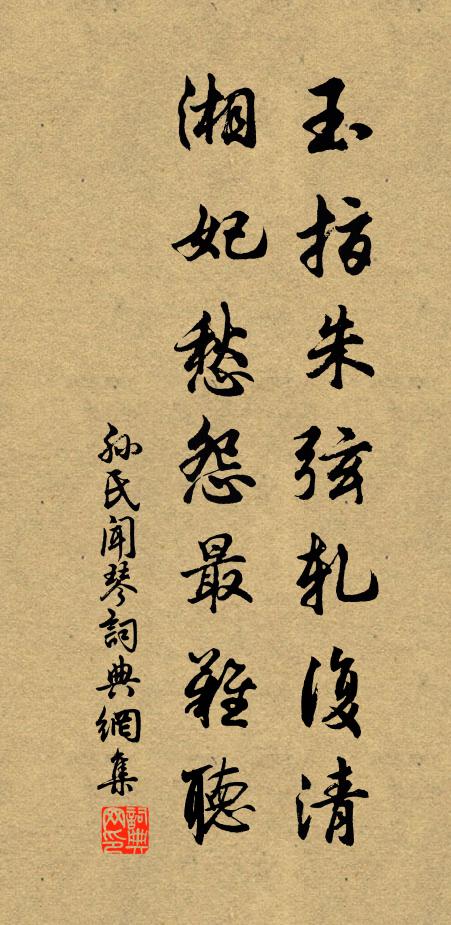 玉指朱弦軋復清
湘妃愁怨最難聽
孫氏聞琴詞典網集
詞典网印